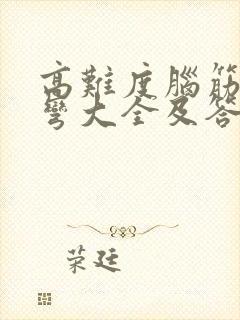 高難度腦筋
彎大全及答
荣廷